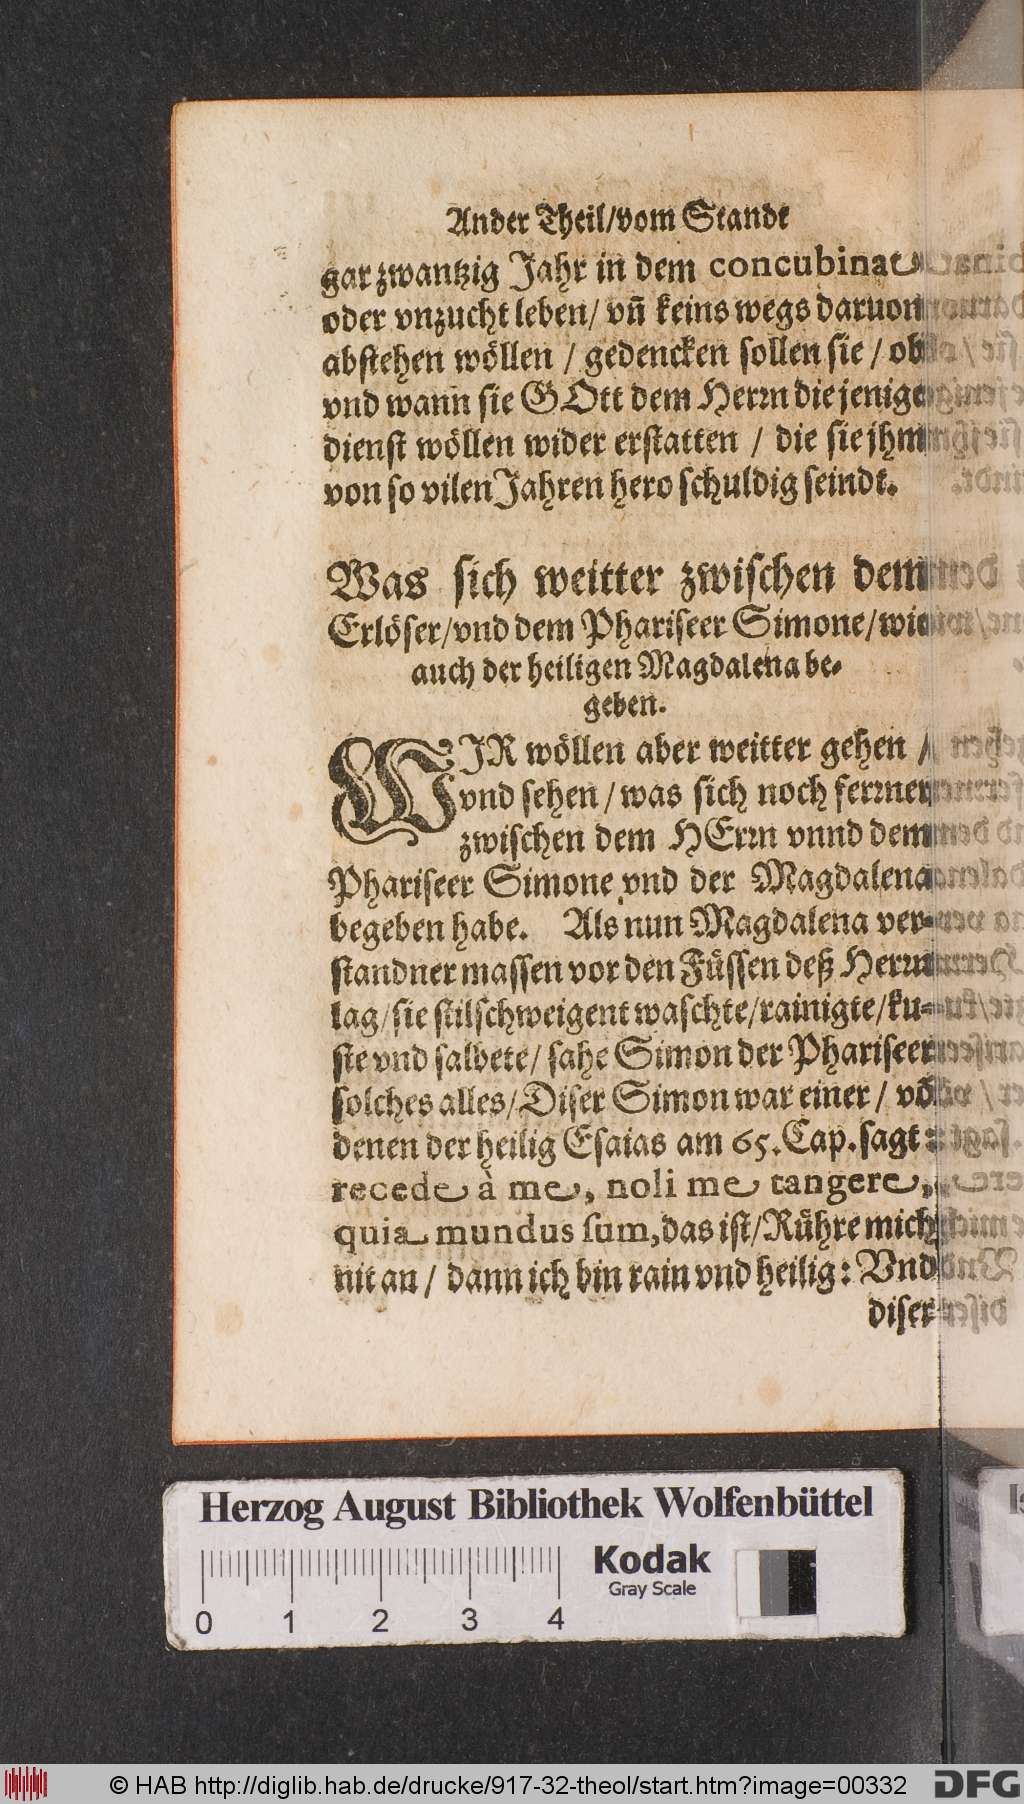 Ander Theil/vom Standt
gar zwantzig Jahr in dem concubinat
oder vnzucht leben/ vñ keins wegs daruon
abstehen wöllen / gedencken sollen sie / ob
vnd wann sie GOtt dem Herrn die jenige
dienst wöllen wider erstatten / die sie jhm
von so vilen Jahren hero schuldig seindt.
Was sich weitter zwischen dem
Erlöser/vnd dem Phariseer Simone/wie
auch der heiligen Magdalena be-
geben.
WIR wöllen aber weitter gehen /
vnd sehen / was sich noch ferrner
zwischen dem HErrn vnnd dem
Phariseer Simone vnd der Magdalena
begeben habe. Als nun Magdalena ver-
standner massen vor den Füssen deß Herrn
lag/sie stilschweigent waschte/rainigte/ku-
ste vnd salbete/ sahe Simon der Phariseer
solches alles/Diser Simon war einer / võ
denen der heilig Esaias am 65. Cap. sagt:
recede à me, noli me tangere,
quia mundus sum, das ist/Rühre mich
nit an / dann ich bin rain vnd heilig: Vnd
diser
Herzog August Bibliothek Wolfenbüttel
Kodak
Gray Scale
0 1 2 3 4
© HAB http://diglib.hab.de/drucke/917-32-theol/start.htm?image=00332
DFG